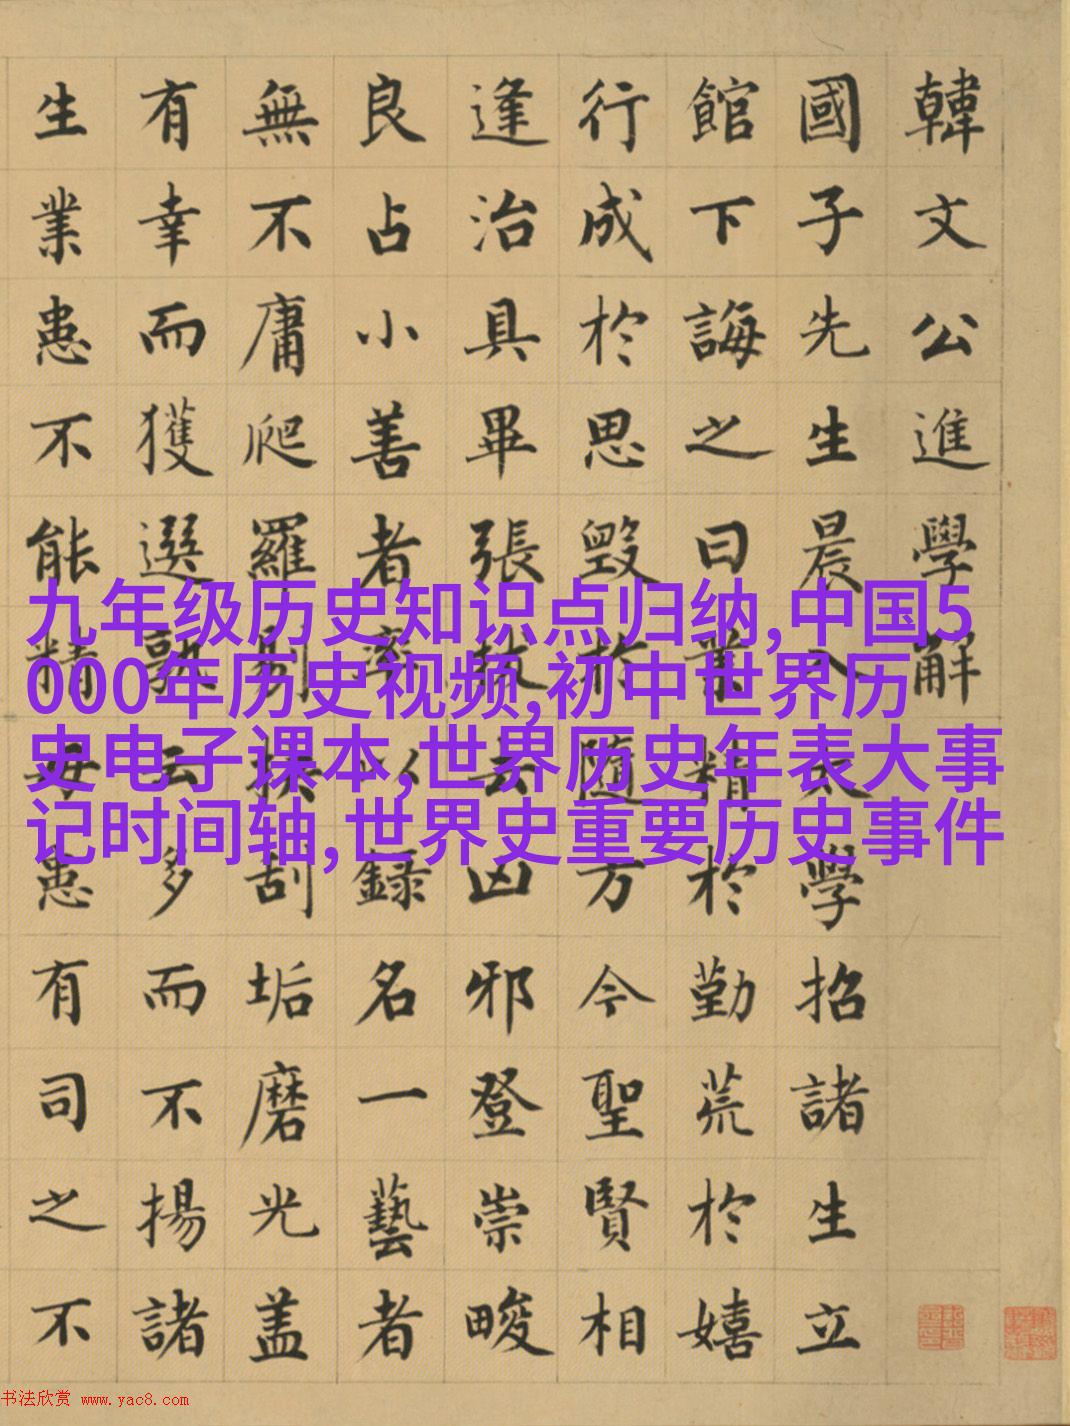 韓文公進學解
國子先生晨入太學招諸生立
館下誨之曰業精於勤荒於嬉
行成於思毀於隨方今聖賢相
逢治具畢張拔去凶邪登崇畯
良占小善者率以錄名一藝者
無不庸爬羅剔抉刮垢磨光盖
有幸而獲選孰云多而不揚諸
生業患不能精毋患有司之不
九年级历史知识点归纳,中国5
000年历史视频,初中世界历
史电子课本,世界历史年表大事
记时间轴,世界史重要历史事件
书法欣赏 www.yac8.com